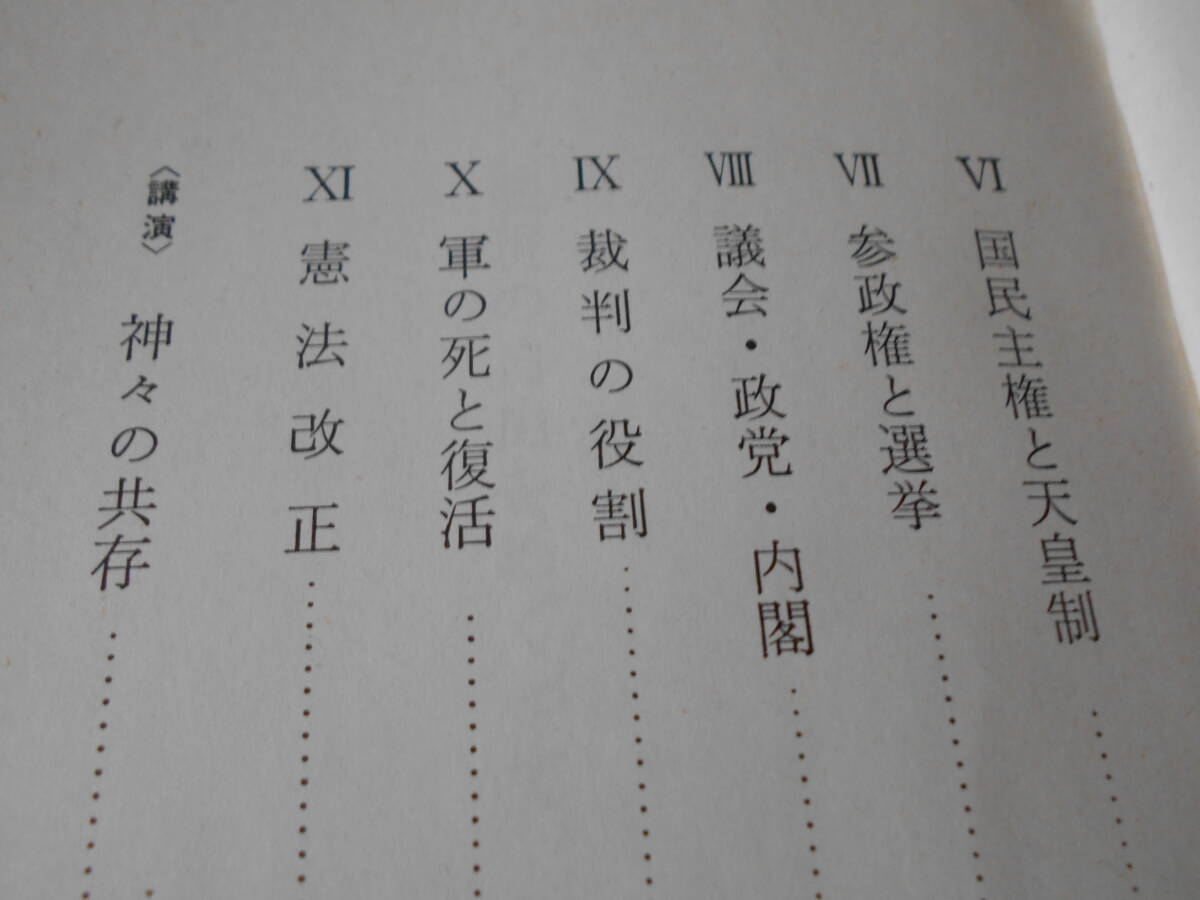 Ⅵ 国民主権と天皇制
Ⅶ 参政権と選挙
Ⅷ 議会・政党・内閣
Ⅸ 裁判の役割
Ⅹ 軍の死と復活
Ⅺ 憲法改正
〈講演〉 神々の共存